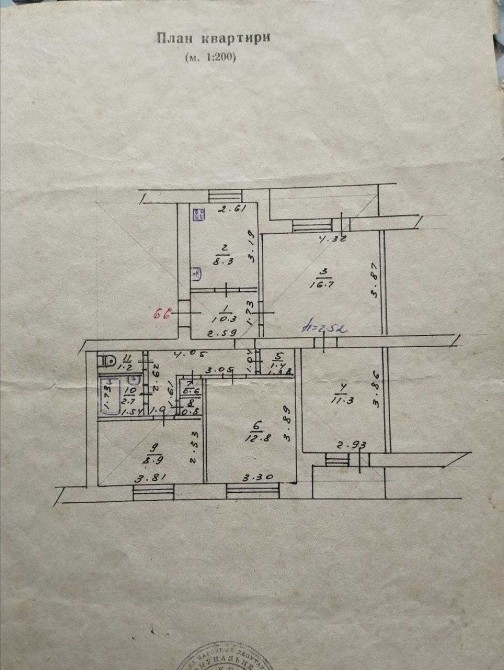 План квартири
(м. 1:200)
2.61
2
8.3
3.19
4.32
3
16.7
3.87
66
1
10.3
1.73
2.59
h=2.52
4.05
1.04
5
1.4
1.38
11
1.2
2.62
3.05
7
0.6
10
2.7
1.73
1.54
1.61
8
0.8
1.0
4
11.3
3.86
6
12.8
3.89
9
8.9
2.53
2.93
3.81
3.30